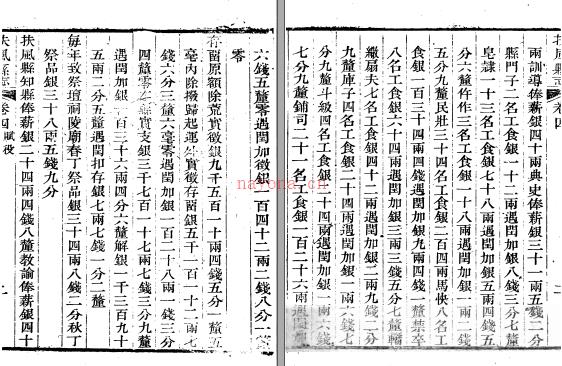 六錢五釐零遇閏加徵銀一百四十二兩二錢八分一釐
零
存留原額除荒實徵銀九千五百一十兩四錢五分一釐
毫內除撥歸起運實徵存留銀五千一百一十二兩七
錢六分三釐六毫零遇閏加銀一百二十八兩一錢三分
四釐零在縣實支銀三千七百一十七兩七錢三分九釐
遇閏加銀一百三十六兩四分六釐解銀一千三百九十
五兩二分五釐遇閏扣存銀七兩七錢一分二釐
每年致祭壇祠陵廟春丁祭品銀三十四兩八錢二分秋丁
祭品銀三十八兩五錢九分
扶風縣知縣俸薪銀二十四兩四錢八釐教諭俸薪銀四十
扶風縣志 卷四 賦役
扶風縣志 卷四
兩訓導俸薪銀四十兩典史俸薪銀三十一兩五錢二分
縣門子二名工食銀一十二兩遇閏加銀八錢三分七釐
皁隸一十三名工食銀七十八兩遇閏加銀四兩四錢五
分六釐仵作三名工食銀一十八兩遇閏加銀一兩二錢
五分九釐民壯三十四名工食銀二百四兩馬快八名工
食銀六十四兩四錢遇閏加銀九兩四錢一釐禁卒
八名工食銀六十四兩遇閏加銀三兩四錢五分七釐轎
繖扇夫七名工食銀四十二兩遇閏加銀二兩九錢二分
九釐庫子四名工食銀二十四兩遇閏加銀一兩六錢七
分九釐斗級四名工食銀二十四兩遇閏加銀一兩六錢
七分九釐鋪司二十一名工食銀一百二十六兩遇閏加銀
nayona.cn